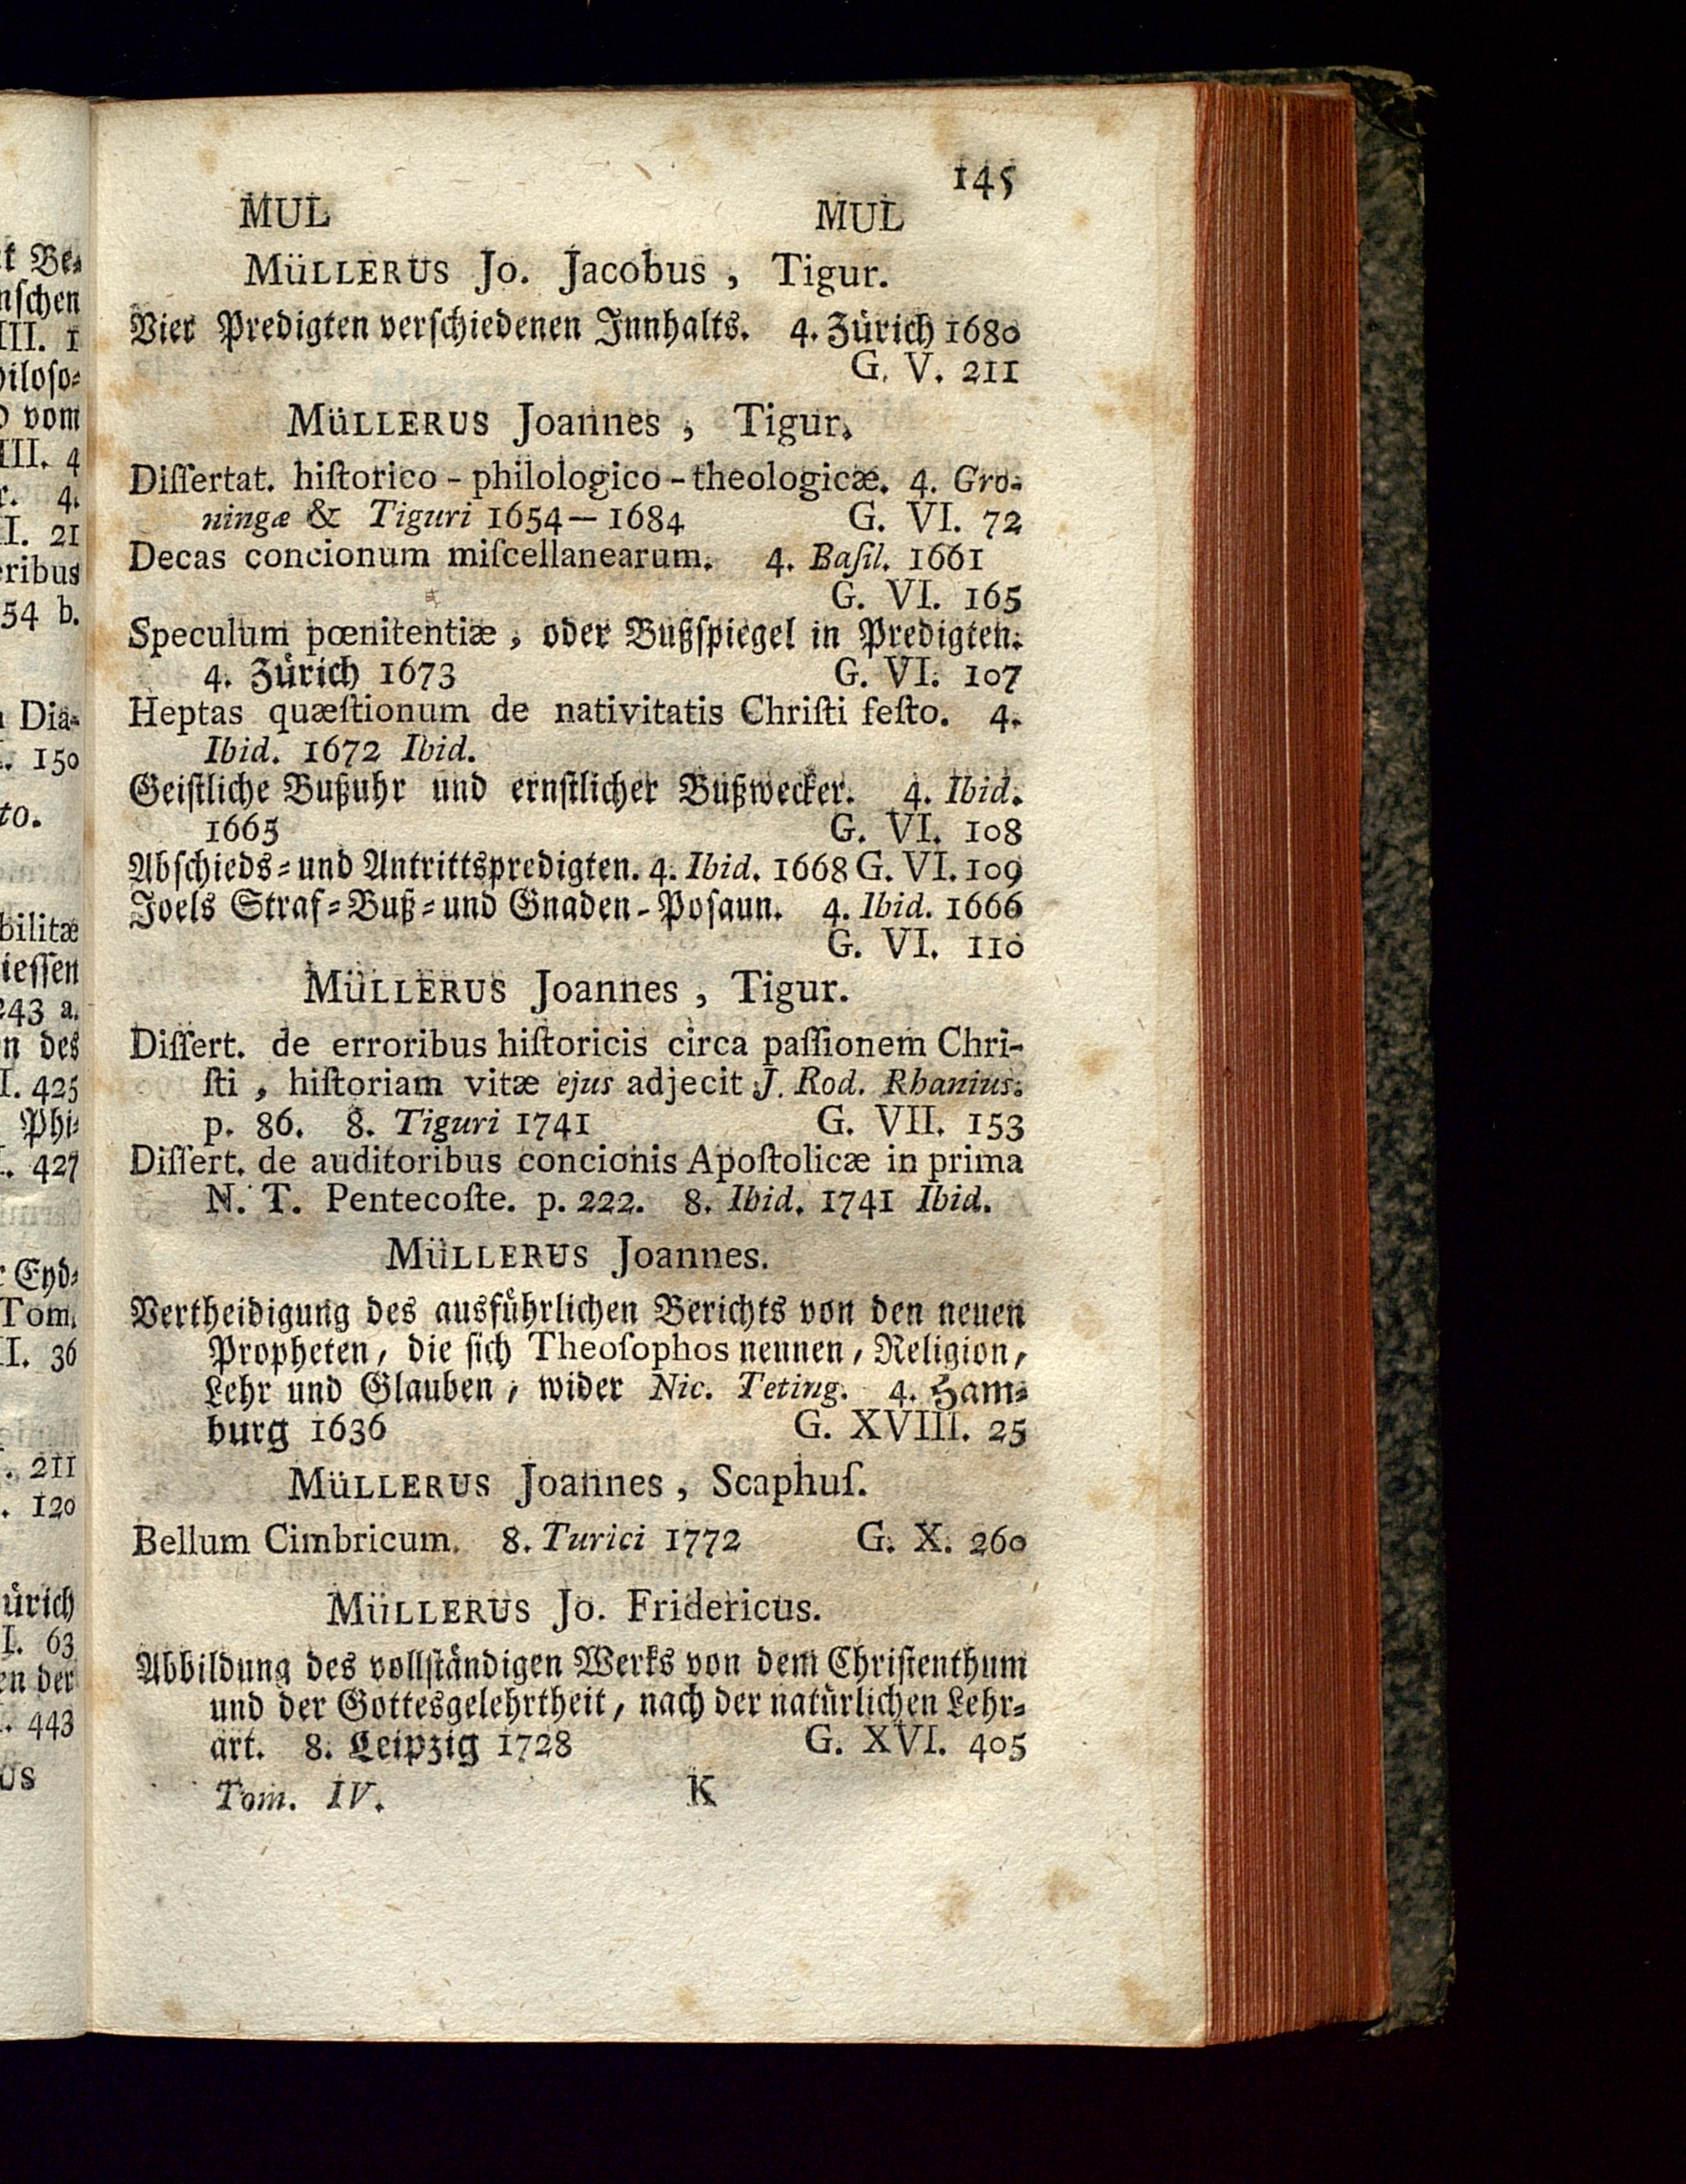 145
MUL MUL
MüLLERUS Jo. Jacobus, Tigur.
Vier Predigten verschiedenen Innhalts. 4. Zürich 1680
G. V. 211
MüLLERUS Joannes, Tigur.
Dissertat. historico-philologico-theologicæ. 4. Gro-
ningæ & Tiguri 1654—1684 G. VI. 72
Decas concionum miscellanearum. 4. Basil. 1661
G. VI. 165
Speculum pœnitentiæ, oder Bußspiegel in Predigten.
4. Zürich 1673 G. VI. 107
Heptas quæstionum de nativitatis Christi festo. 4.
Ibid. 1672 Ibid.
Geistliche Bußuhr und ernstlicher Bußwecker. 4. Ibid.
1665 G. VI. 108
Abschieds-und Antrittspredigten. 4. Ibid. 1668 G. VI. 109
Joels Straf-Buß-und Gnaden-Posaun. 4. Ibid. 1666
G. VI. 110
MüLLERUS Joannes, Tigur.
Dissert. de erroribus historicis circa passionem Chri-
sti, historiam vitæ ejus adjecit J. Rod. Rhanius.
p. 86. 8. Tiguri 1741 G. VII. 153
Dissert. de auditoribus concionis Apostolicæ in prima
N. T. Pentecoste. p. 222. 8. Ibid. 1741 Ibid.
MüLLERUS Joannes.
Vertheidigung des ausführlichen Berichts von den neuen
Propheten, die sich Theosophos nennen, Religion,
Lehr und Glauben, wider Nic. Teting. 4. Ham-
burg 1636 G. XVIII. 25
MüLLERUS Joannes, Scaphus.
Bellum Cimbricum. 8. Turici 1772 G. X. 260
MüLLERUS Jo. Fridericus.
Abbildung des vollständigen Werks von dem Christenthum
und der Gottesgelehrtheit, nach der natürlichen Lehr-
art. 8. Leipzig 1728 G. XVI. 405
Tom. IV. K